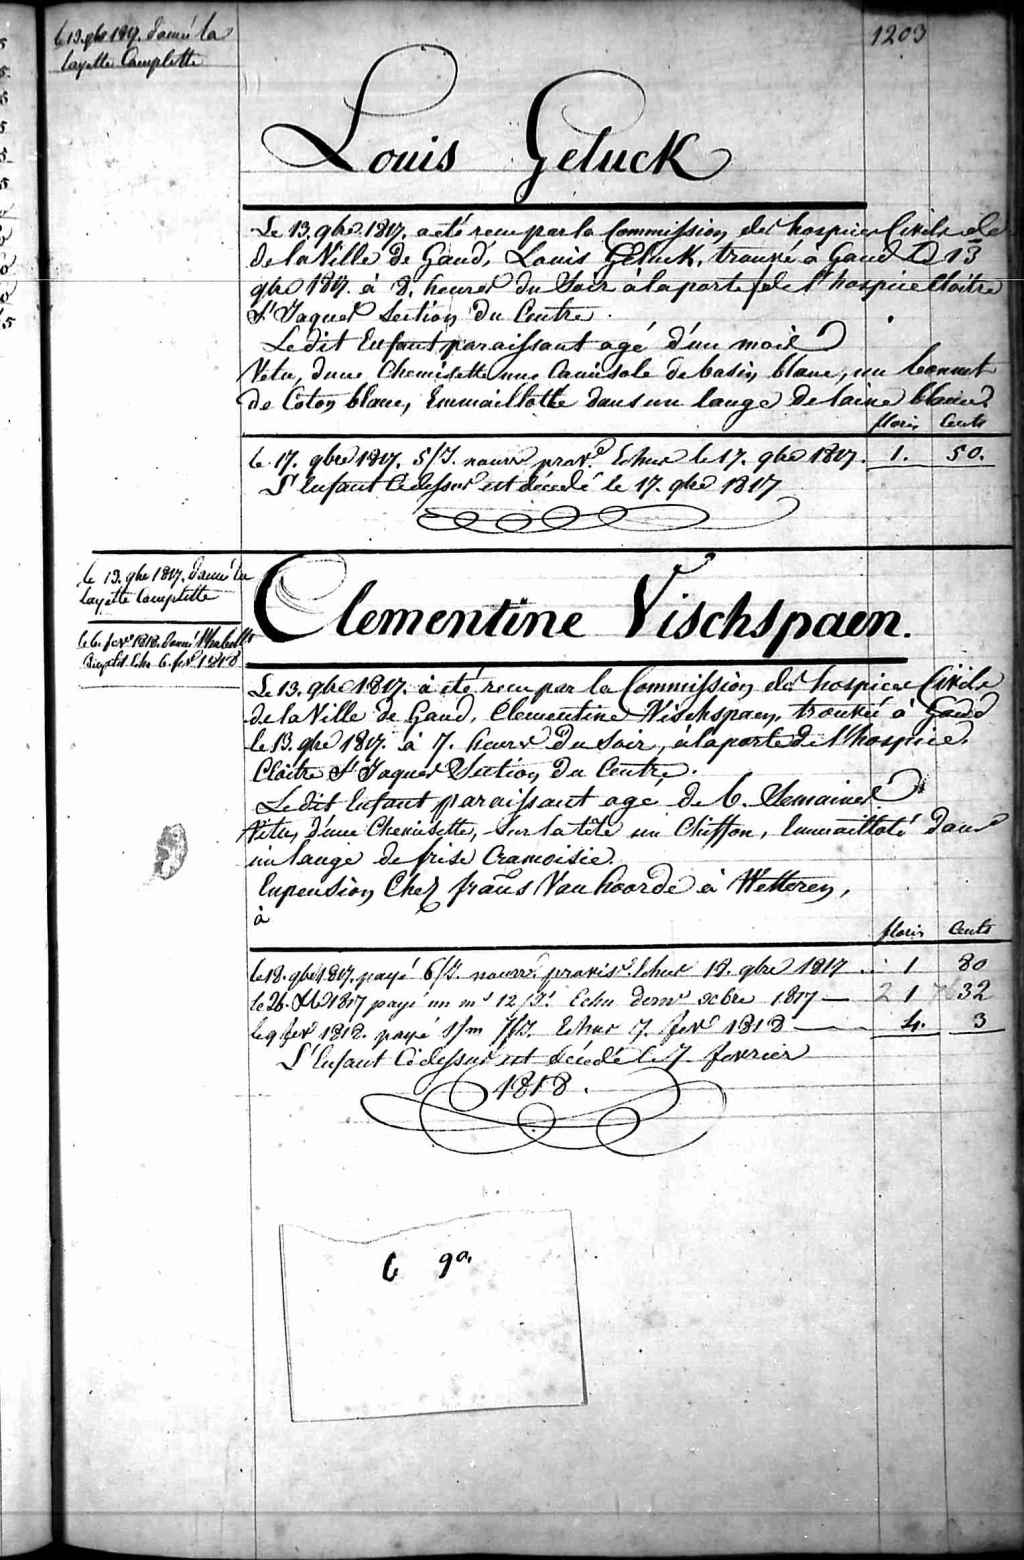 1203
le 13. gbre 1817. donné la
layette Complette
Louis Geluck
Le 13. gbre 1817. a été recu par la Commission des hospices Civils de
de la Ville de Gand, Louis Geluck, trouvé a Gand le 13
gbre 1817. à 8. heures du Soir à la porte de l'hospice Cloitre
St Jaques Section du Centre.
Le dit Enfant paraissant agé d'un mois
Vetu, d'une Chemisette une Camisole de basin blanc, un bonnet
de Coton blanc, Emmaillotté dans un lange de laine blanche.
florin Cents
le 17. gbre 1817. 5/J. nourre provre Echue le 17. gbre 1817. 1. 50.
L'Enfant Cidessus est décédé le 17. gbre 1817
le 13. gbre 1817. donné la
layette Complette
le 6. fevr 1818. donné
Echu 6. fevr 1818
Clementine Vischspaen.
Le 13. gbre 1817. à été recu par la Commission des hospices Civils
de la Ville de Gand, Clementine Vischspaen, trouvée à Gand
le 13. gbre 1817. à 7. heures du soir, à la porte de l'hospice
Cloître St Jaques Section du Centre.
Le dit Enfant paraissant agé de 6. Semaines
Vétu, d'une Chemisette, Sur la tête un Chiffon, Emmailloté dans
un lange de frise Cramoisie.
En pension Chez frans Van hoorde à Wetteren,
à
florin Cents
le 18. gbre 1817. payé 6/J. nourre provisre Echue 18. gbre 1817 1 80
le 26. Xbre 1817 payé un ms 12/Js Echu dernr xbre 1817 — 2 1 32
le 9 fevr 1818. payé 1/m 7/J. Echue 7. fevr 1818 — 4. 3
L'Enfant Cidessus est décédé le 7 fevrier
1818.
6 9a